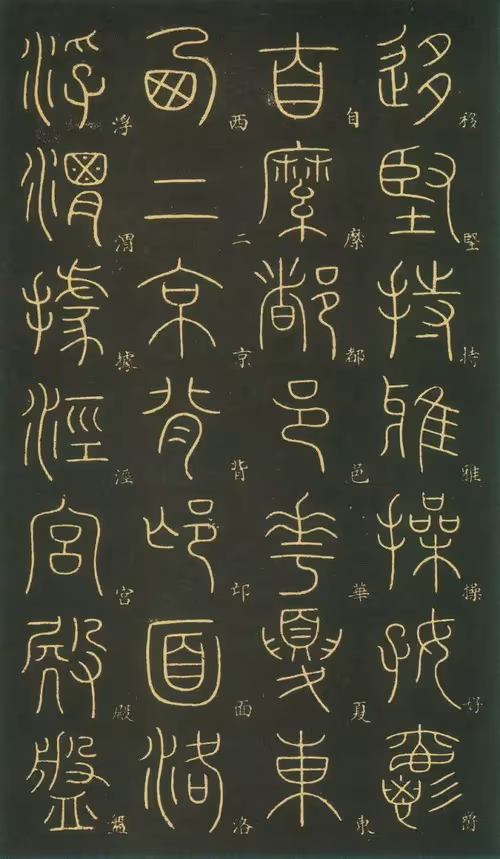 移堅持雅操好爵
移堅持雅操好爵
自縻都邑華夏東
自縻都邑華夏東
西二京背邙面洛
西二京背邙面洛
浮渭據涇宮殿盤
浮渭據涇宮殿盤